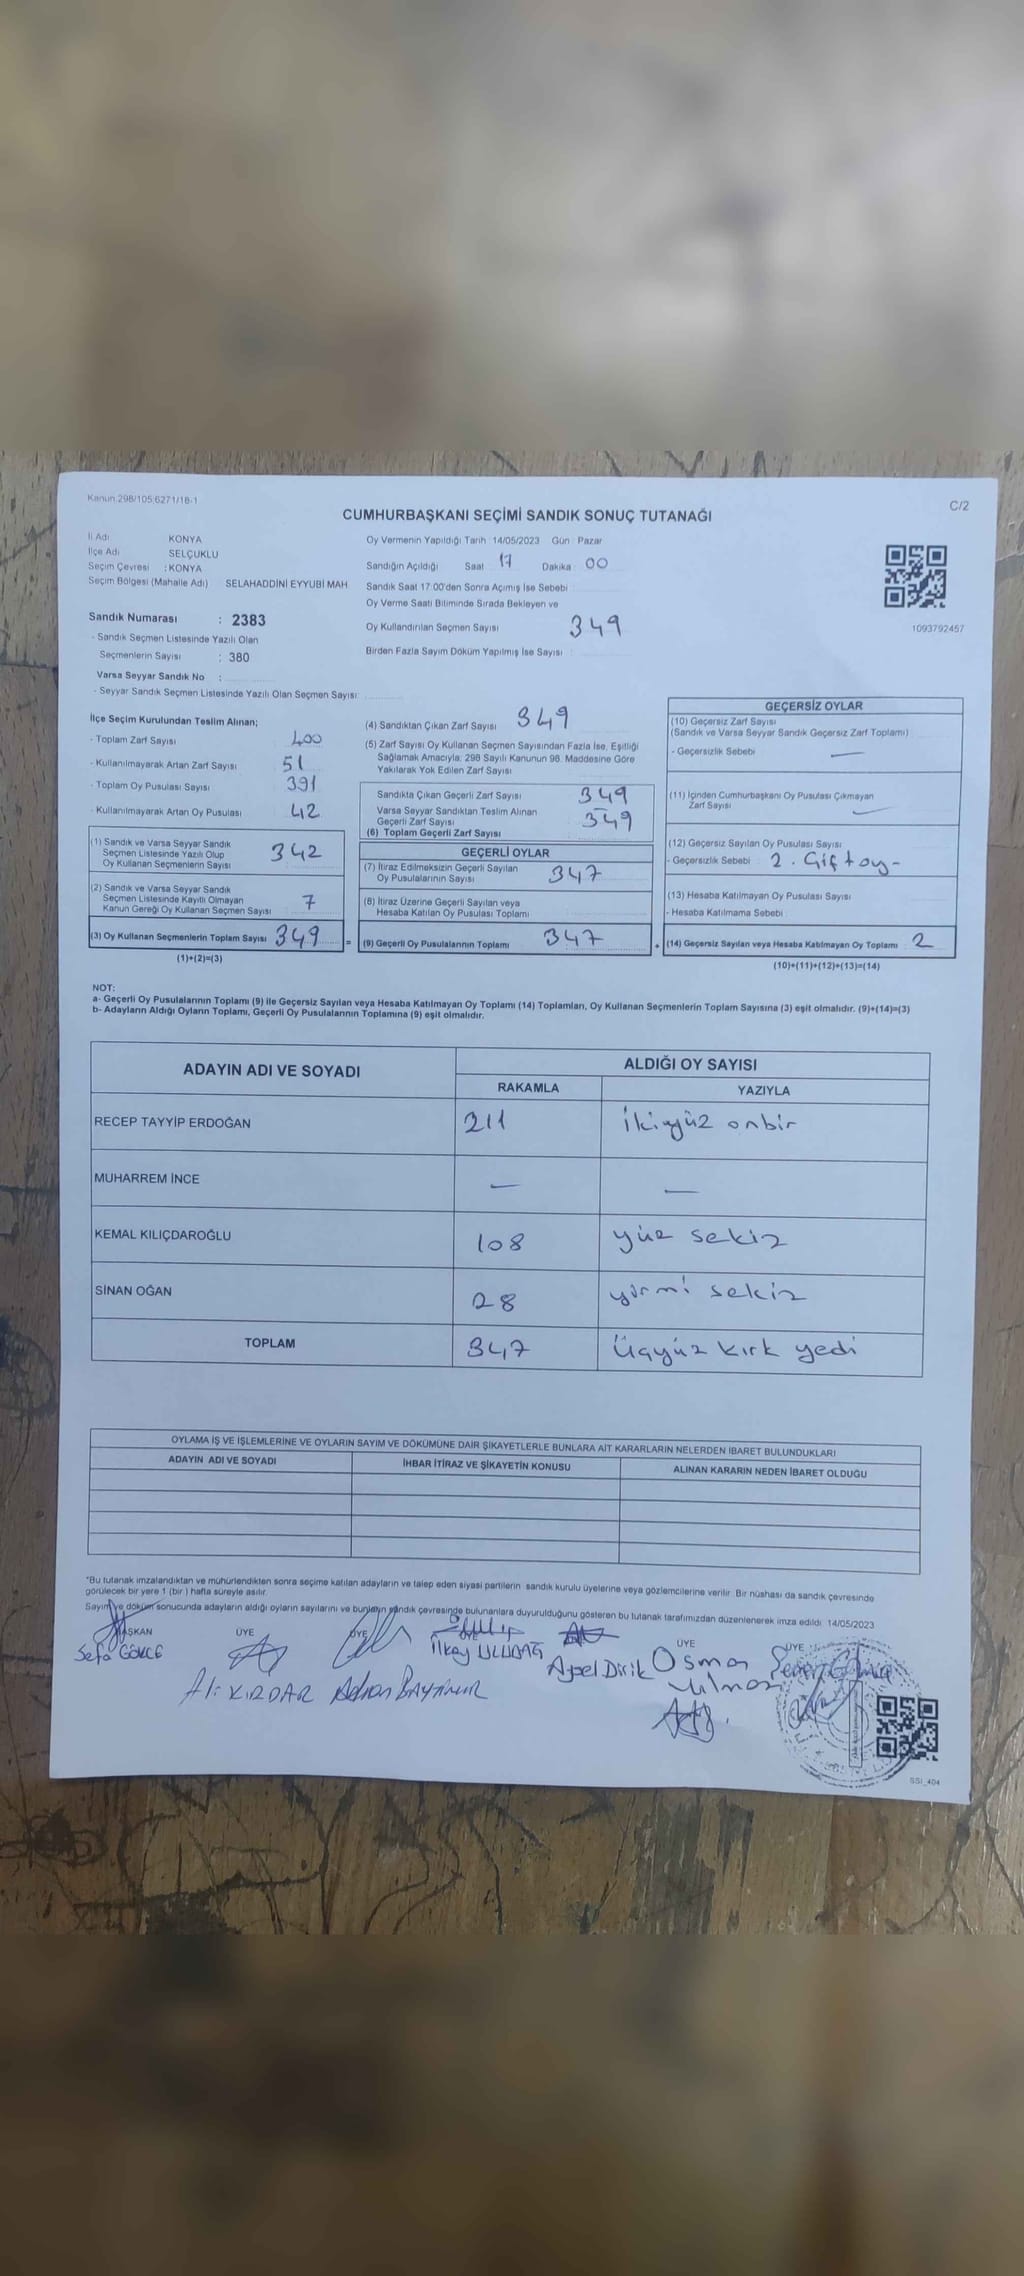 Kanun 298/105;6271/18-1
C/2
CUMHURBAŞKANI SEÇİMİ SANDIK SONUÇ TUTANAĞI
İl Adı KONYA
İlçe Adı SELÇUKLU
Seçim Çevresi : KONYA
Seçim Bölgesi (Mahalle Adı) SELAHADDİNİ EYYUBİ MAH
Sandık Numarası : 2383
- Sandık Seçmen Listesinde Yazılı Olan
Seçmenlerin Sayısı : 380
Varsa Seyyar Sandık No :
- Seyyar Sandık Seçmen Listesinde Yazılı Olan Seçmen Sayısı:
Oy Vermenin Yapıldığı Tarih : 14/05/2023 Gün : Pazar
Sandığın Açıldığı Saat 17 Dakika 00
Sandık Saat 17:00'den Sonra Açımış İse Sebebi
Oy Verme Saati Bitiminde Sırada Bekleyen ve
Oy Kullandırılan Seçmen Sayısı 349
Birden Fazla Sayım Döküm Yapılmış İse Sayısı :
1093792457
İlçe Seçim Kurulundan Teslim Alınan;
- Toplam Zarf Sayısı 400
- Kullanılmayarak Artan Zarf Sayısı 51
- Toplam Oy Pusulası Sayısı 391
- Kullanılmayarak Artan Oy Pusulası 42
(1) Sandık ve Varsa Seyyar Sandık
Seçmen Listesinde Yazılı Olup
Oy Kullanan Seçmenlerin Sayısı 342
(2) Sandık ve Varsa Seyyar Sandık
Seçmen Listesinde Kayıtlı Olmayan
Kanun Gereği Oy Kullanan Seçmen Sayısı 7
(3) Oy Kullanan Seçmenlerin Toplam Sayısı 349 =
(1)+(2)=(3)
(4) Sandıktan Çıkan Zarf Sayısı 349
(5) Zarf Sayısı Oy Kullanan Seçmen Sayısından Fazla İse, Eşitliği
Sağlamak Amacıyla; 298 Sayılı Kanunun 98. Maddesine Göre
Yakılarak Yok Edilen Zarf Sayısı
Sandıkta Çıkan Geçerli Zarf Sayısı 349
Varsa Seyyar Sandıktan Teslim Alınan
Geçerli Zarf Sayısı
(6) Toplam Geçerli Zarf Sayısı 349
GEÇERLİ OYLAR
(7) İtiraz Edilmeksizin Geçerli Sayılan
Oy Pusulalarının Sayısı 347
(8) İtiraz Üzerine Geçerli Sayılan veya
Hesaba Katılan Oy Pusulası Toplamı
(9) Geçerli Oy Pusulalarının Toplamı 347 +
GEÇERSİZ OYLAR
(10) Geçersiz Zarf Sayısı
(Sandık ve Varsa Seyyar Sandık Geçersiz Zarf Toplamı)
- Geçersizlik Sebebi —
(11) İçinden Cumhurbaşkanı Oy Pusulası Çıkmayan
Zarf Sayısı —
(12) Geçersiz Sayılan Oy Pusulası Sayısı
- Geçersizlik Sebebi : 2. Çift oy -
(13) Hesaba Katılmayan Oy Pusulası Sayısı
- Hesaba Katılmama Sebebi
(14) Geçersiz Sayılan veya Hesaba Katılmayan Oy Toplamı 2
(10)+(11)+(12)+(13)=(14)
NOT:
a- Geçerli Oy Pusulalarının Toplamı (9) ile Geçersiz Sayılan veya Hesaba Katılmayan Oy Toplamı (14) Toplamları, Oy Kullanan Seçmenlerin Toplam Sayısına (3) eşit olmalıdır. (9)+(14)=(3)
b- Adayların Aldığı Oyların Toplamı, Geçerli Oy Pusulalarının Toplamına (9) eşit olmalıdır.
ADAYIN ADI VE SOYADI ALDIĞI OY SAYISI
RAKAMLA YAZIYLA
RECEP TAYYİP ERDOĞAN 211 ikiyüz onbir
MUHARREM İNCE — —
KEMAL KILIÇDAROĞLU 108 yüz sekiz
SİNAN OĞAN 28 yirmi sekiz
TOPLAM 347 Üçyüz kırk yedi
OYLAMA İŞ VE İŞLEMLERİNE VE OYLARIN SAYIM VE DÖKÜMÜNE DAİR ŞİKAYETLERLE BUNLARA AİT KARARLARIN NELERDEN İBARET BULUNDUKLARI
ADAYIN ADI VE SOYADI İHBAR İTİRAZ VE ŞİKAYETİN KONUSU ALINAN KARARIN NEDEN İBARET OLDUĞU
*Bu tutanak imzalandıktan ve mühürlendikten sonra seçime katılan adayların ve talep eden siyasi partilerin sandık kurulu üyelerine veya gözlemcilerine verilir. Bir nüshası da sandık çevresinde
görülecek bir yere 1 (bir ) hafta süreyle asılır.
Sayım ve döküm sonucunda adayların aldığı oyların sayılarını ve bunların sandık çevresinde bulunanlara duyurulduğunu gösteren bu tutanak tarafımızdan düzenlenerek imza edildi 14/05/2023
BAŞKAN ÜYE ÜYE ÜYE ÜYE ÜYE
Sefa GÖKCE Ali KIRDAR Adnan BAYINDIR İlkay ULUDAĞ Aysel Dirik Osman Yılmaz
SSİ_404